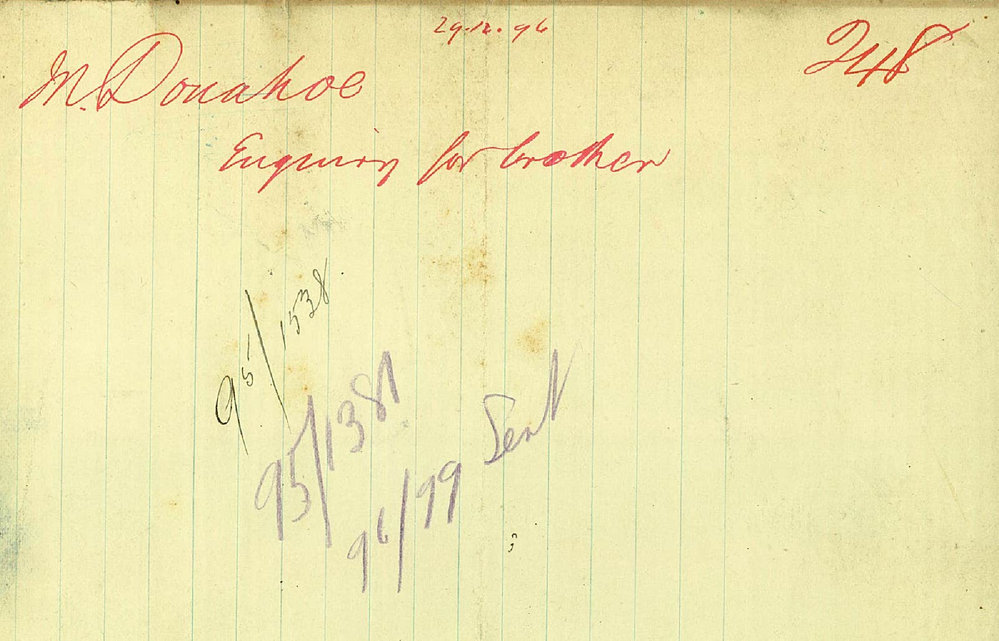 29.12.96
248
M. Donahoe
Enquiry for brother
95/1538.
95/1381.
96/99 Sent